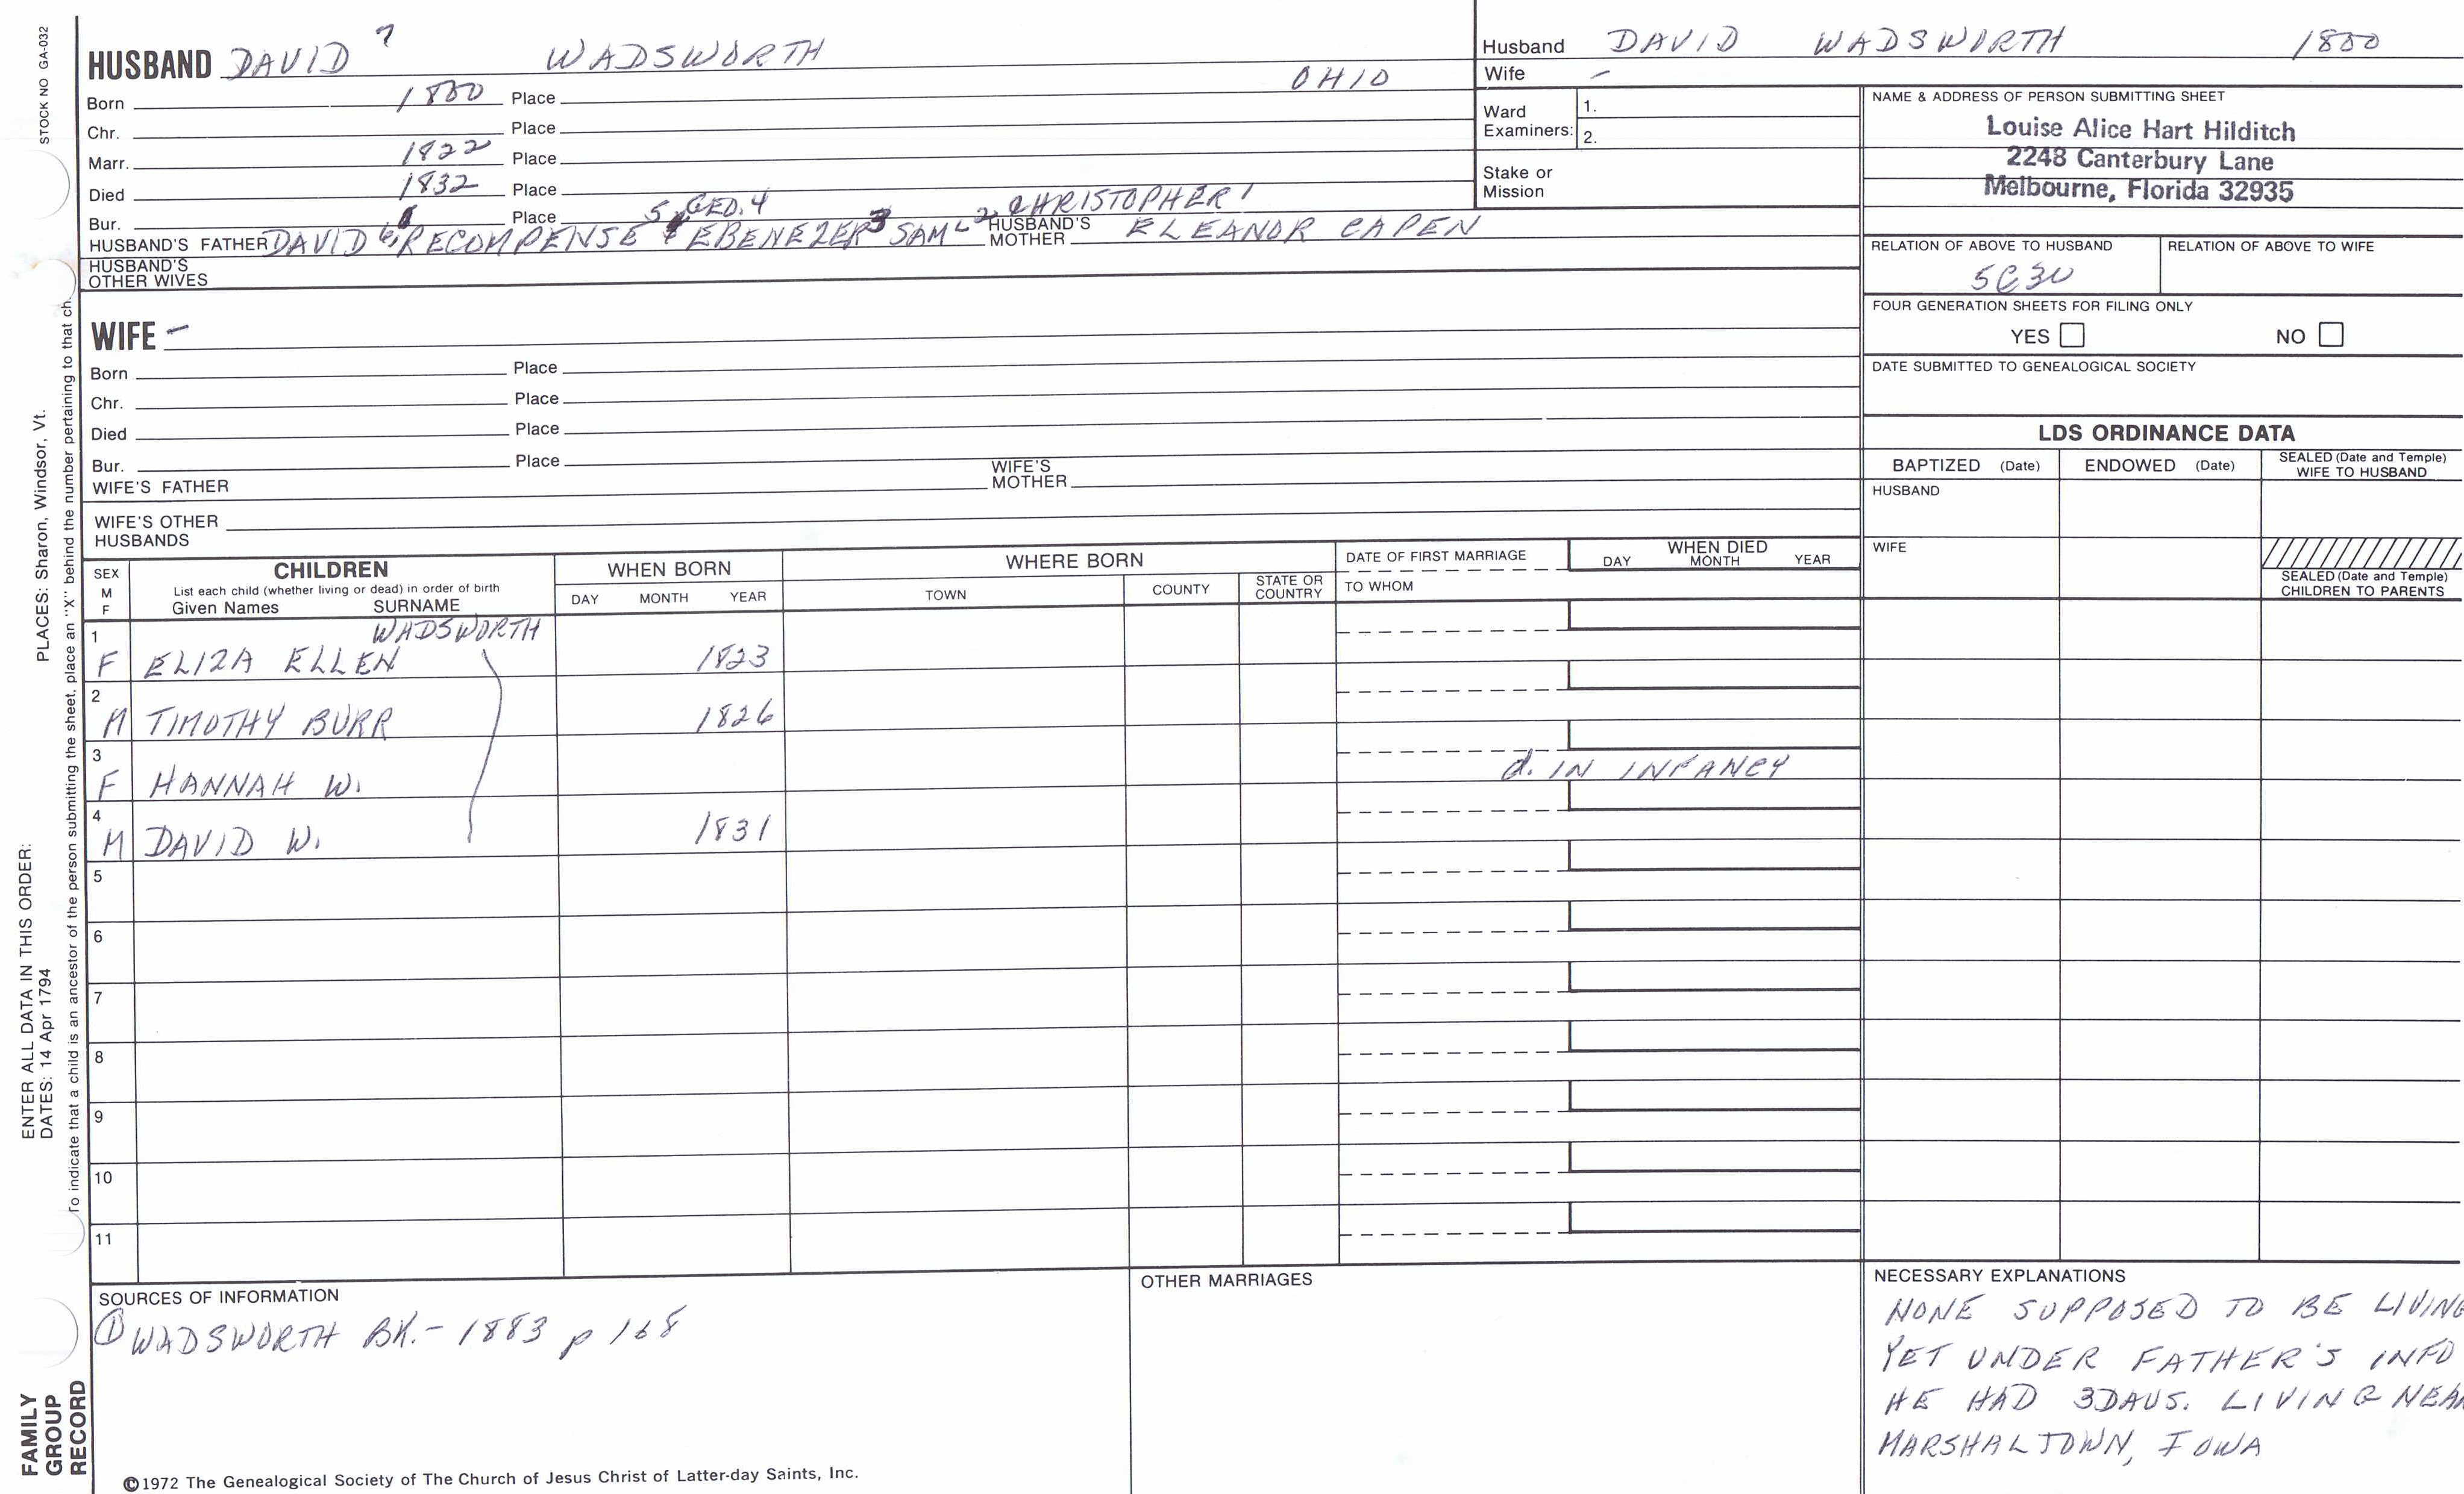 STOCK NO GA-032
HUSBAND DAVID 7 WADSWORTH
Born 1800 Place OHIO
Chr. Place
Marr. 1822 Place
Died 1832 Place
Bur. Place
HUSBAND'S FATHER DAVID 6, RECOMPENSE 5 GEO. 4 EBENEZER 3 SAML 2 CHRISTOPHER 1 HUSBAND'S MOTHER ELEANOR CAPEN
HUSBAND'S OTHER WIVES
WIFE -
Born Place
Chr. Place
Died Place
Bur. Place
WIFE'S FATHER WIFE'S MOTHER
WIFE'S OTHER HUSBANDS
Husband DAVID WADSWORTH 1800
Wife -
Ward Examiners: 1.
2.
Stake or Mission
NAME & ADDRESS OF PERSON SUBMITTING SHEET
Louise Alice Hart Hilditch
2248 Canterbury Lane
Melbourne, Florida 32935
RELATION OF ABOVE TO HUSBAND RELATION OF ABOVE TO WIFE
5C3U
FOUR GENERATION SHEETS FOR FILING ONLY
YES NO
DATE SUBMITTED TO GENEALOGICAL SOCIETY
LDS ORDINANCE DATA
BAPTIZED (Date) ENDOWED (Date) SEALED (Date and Temple) WIFE TO HUSBAND
HUSBAND
WIFE
SEALED (Date and Temple) CHILDREN TO PARENTS
SEX M F CHILDREN WHEN BORN WHERE BORN DATE OF FIRST MARRIAGE WHEN DIED
List each child (whether living or dead) in order of birth
Given Names SURNAME DAY MONTH YEAR TOWN COUNTY STATE OR COUNTRY TO WHOM DAY MONTH YEAR
WADSWORTH
1 F ELIZA ELLEN 1823
2 M TIMOTHY BURR 1826
3 F HANNAH W. d. IN INFANCY
4 M DAVID W. 1831
5
6
7
8
9
10
11
SOURCES OF INFORMATION
① WADSWORTH BK. - 1883 p 168
OTHER MARRIAGES
NECESSARY EXPLANATIONS
NONE SUPPOSED TO BE LIVING
YET UNDER FATHER'S INFO
HE HAD 3 DAUS. LIVING NEAR
MARSHALTOWN, IOWA
©1972 The Genealogical Society of The Church of Jesus Christ of Latter-day Saints, Inc.
ENTER ALL DATA IN THIS ORDER:
DATES: 14 Apr 1794 PLACES: Sharon, Windsor, Vt.
To indicate that a child is an ancestor of the person submitting the sheet, place an "X" behind the number pertaining to that ch
FAMILY
GROUP
RECORD